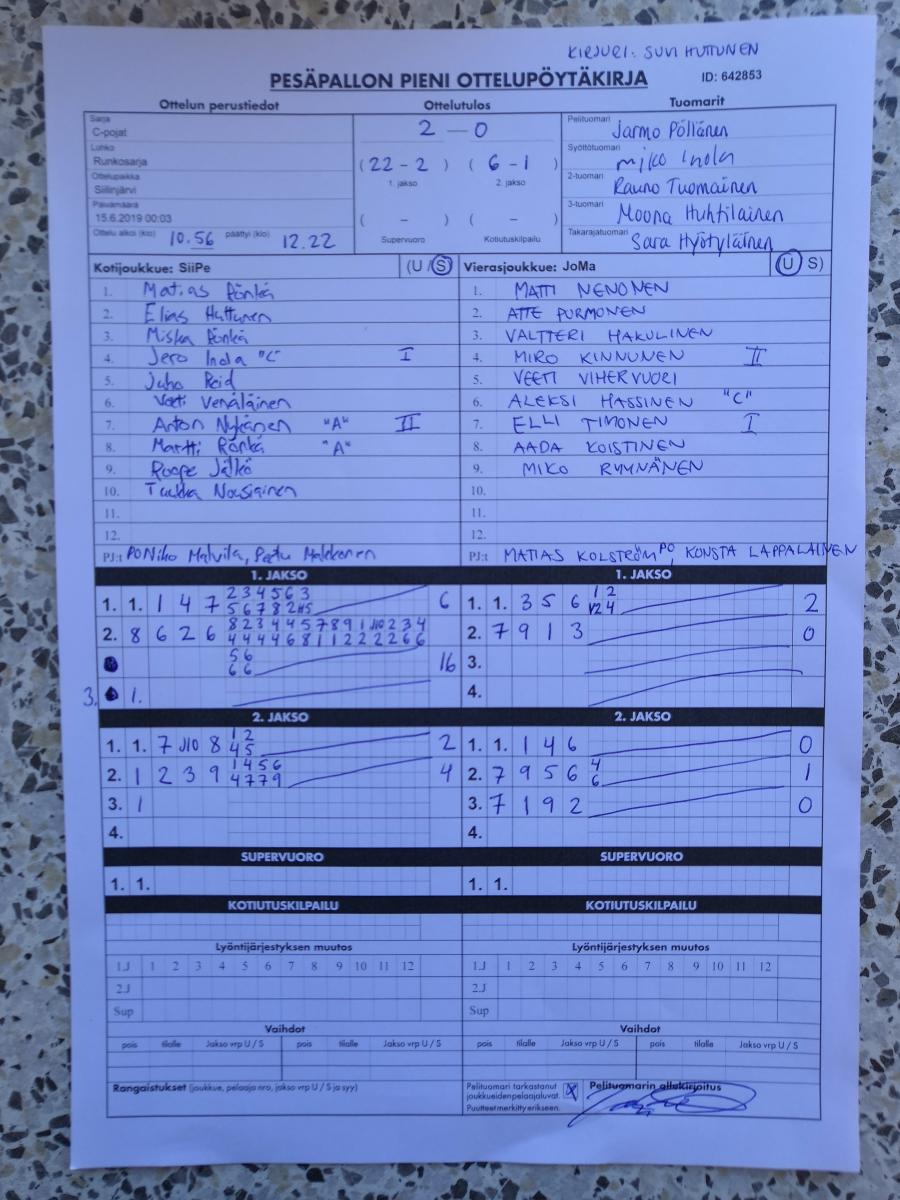 KIRJURI: SUVI HUTTUNEN
PESÄPALLON PIENI OTTELUPÖYTÄKIRJA ID: 642853
Ottelun perustiedot Ottelutulos Tuomarit
Sarja
C-pojat
Lohko
Runkosarja
Ottelupaikka
Siilinjärvi
Päivämäärä
15.6.2019 00:03
Ottelu alkoi (klo) 10.56 päättyi (klo) 12.22
2 – 0
(22 - 2) (6 - 1)
1. jakso 2. jakso
( - ) ( - )
Supervuoro Kotiutuskilpailu
Pelituomari Jarmo Pöllänen
Syöttötuomari Miko Inola
2-tuomari Rauno Tuomainen
3-tuomari Moona Huhtilainen
Takarajatuomari Sara Hyötyläinen
Kotijoukkue: SiiPe (U / S)
1. Matias Rönkä
2. Elias Huttunen
3. Miska Rönkä
4. Jero Inola "C" I
5. Juho Reid
6. Veeti Venäläinen
7. Anton Nykänen "A" II
8. Martti Rönkä "A"
9. Roope Jälkö
10. Tuukka Nousiainen
11.
12.
PJ:t PO Niko Matvila, Peetu Makkonen
Vierasjoukkue: JoMa (U S)
1. MATTI NENONEN
2. ATTE PURMONEN
3. VALTTERI HAKULINEN
4. MIRO KINNUNEN II
5. VEETI VIHERVUORI
6. ALEKSI HASSINEN "C"
7. ELLI TIMONEN I
8. AADA KOISTINEN
9. MIKO RYYNÄNEN
10.
11.
12.
PJ:t MATIAS KOLSTRÖM PO, KONSTA LAPPALAINEN
1. JAKSO
1. 1. 1 4 7 2 3 4 5 6 3 6
5 6 7 8 2
2. 8 6 2 6 8 2 3 4 4 5 7 8 9 1 J10 2 3 4
4 4 4 4 6 8 1 1 2 2 2 2 6 6
5 6 16
6 6
3. 1.
1. JAKSO
1. 1. 3 5 6 1 2 2
2 4
2. 7 9 1 3 0
3.
4.
2. JAKSO
1. 1. 7 J10 8 1 2 2
4 5
2. 1 2 3 9 1 4 5 6 4
4 7 7 9
3. 1
4.
2. JAKSO
1. 1. 1 4 6 0
2. 7 9 5 6 4 1
6
3. 7 1 9 2 0
4.
SUPERVUORO SUPERVUORO
1. 1. 1. 1.
KOTIUTUSKILPAILU KOTIUTUSKILPAILU
Lyöntijärjestyksen muutos Lyöntijärjestyksen muutos
1.J 1 2 3 4 5 6 7 8 9 10 11 12 1.J 1 2 3 4 5 6 7 8 9 10 11 12
2.J 2.J
Sup Sup
Vaihdot Vaihdot
pois tilalle Jakso vrp U / S pois tilalle Jakso vrp U / S pois tilalle Jakso vrp U / S pois tilalle Jakso vrp U / S
Rangaistukset (joukkue, pelaaja nro, jakso vrp U / S ja syy)
Pelituomari tarkastanut
joukkueiden pelaajaluvat. X
Puutteet merkitty erikseen.
Pelituomarin allekirjoitus